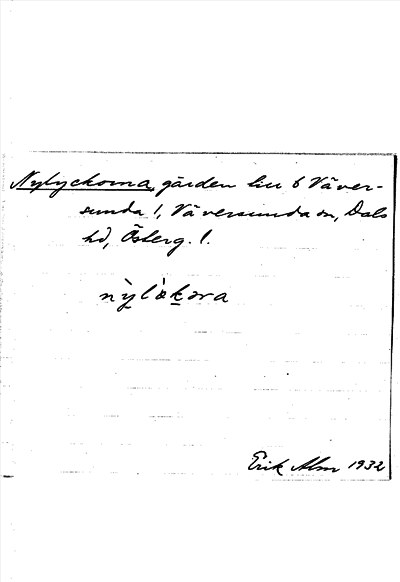 Nylyckorna, gården litt 6 Väver-
sunda 1, Väversunda sn, Dals
hd, Österg. l.
nỳlòkora
Erik Alm 1932